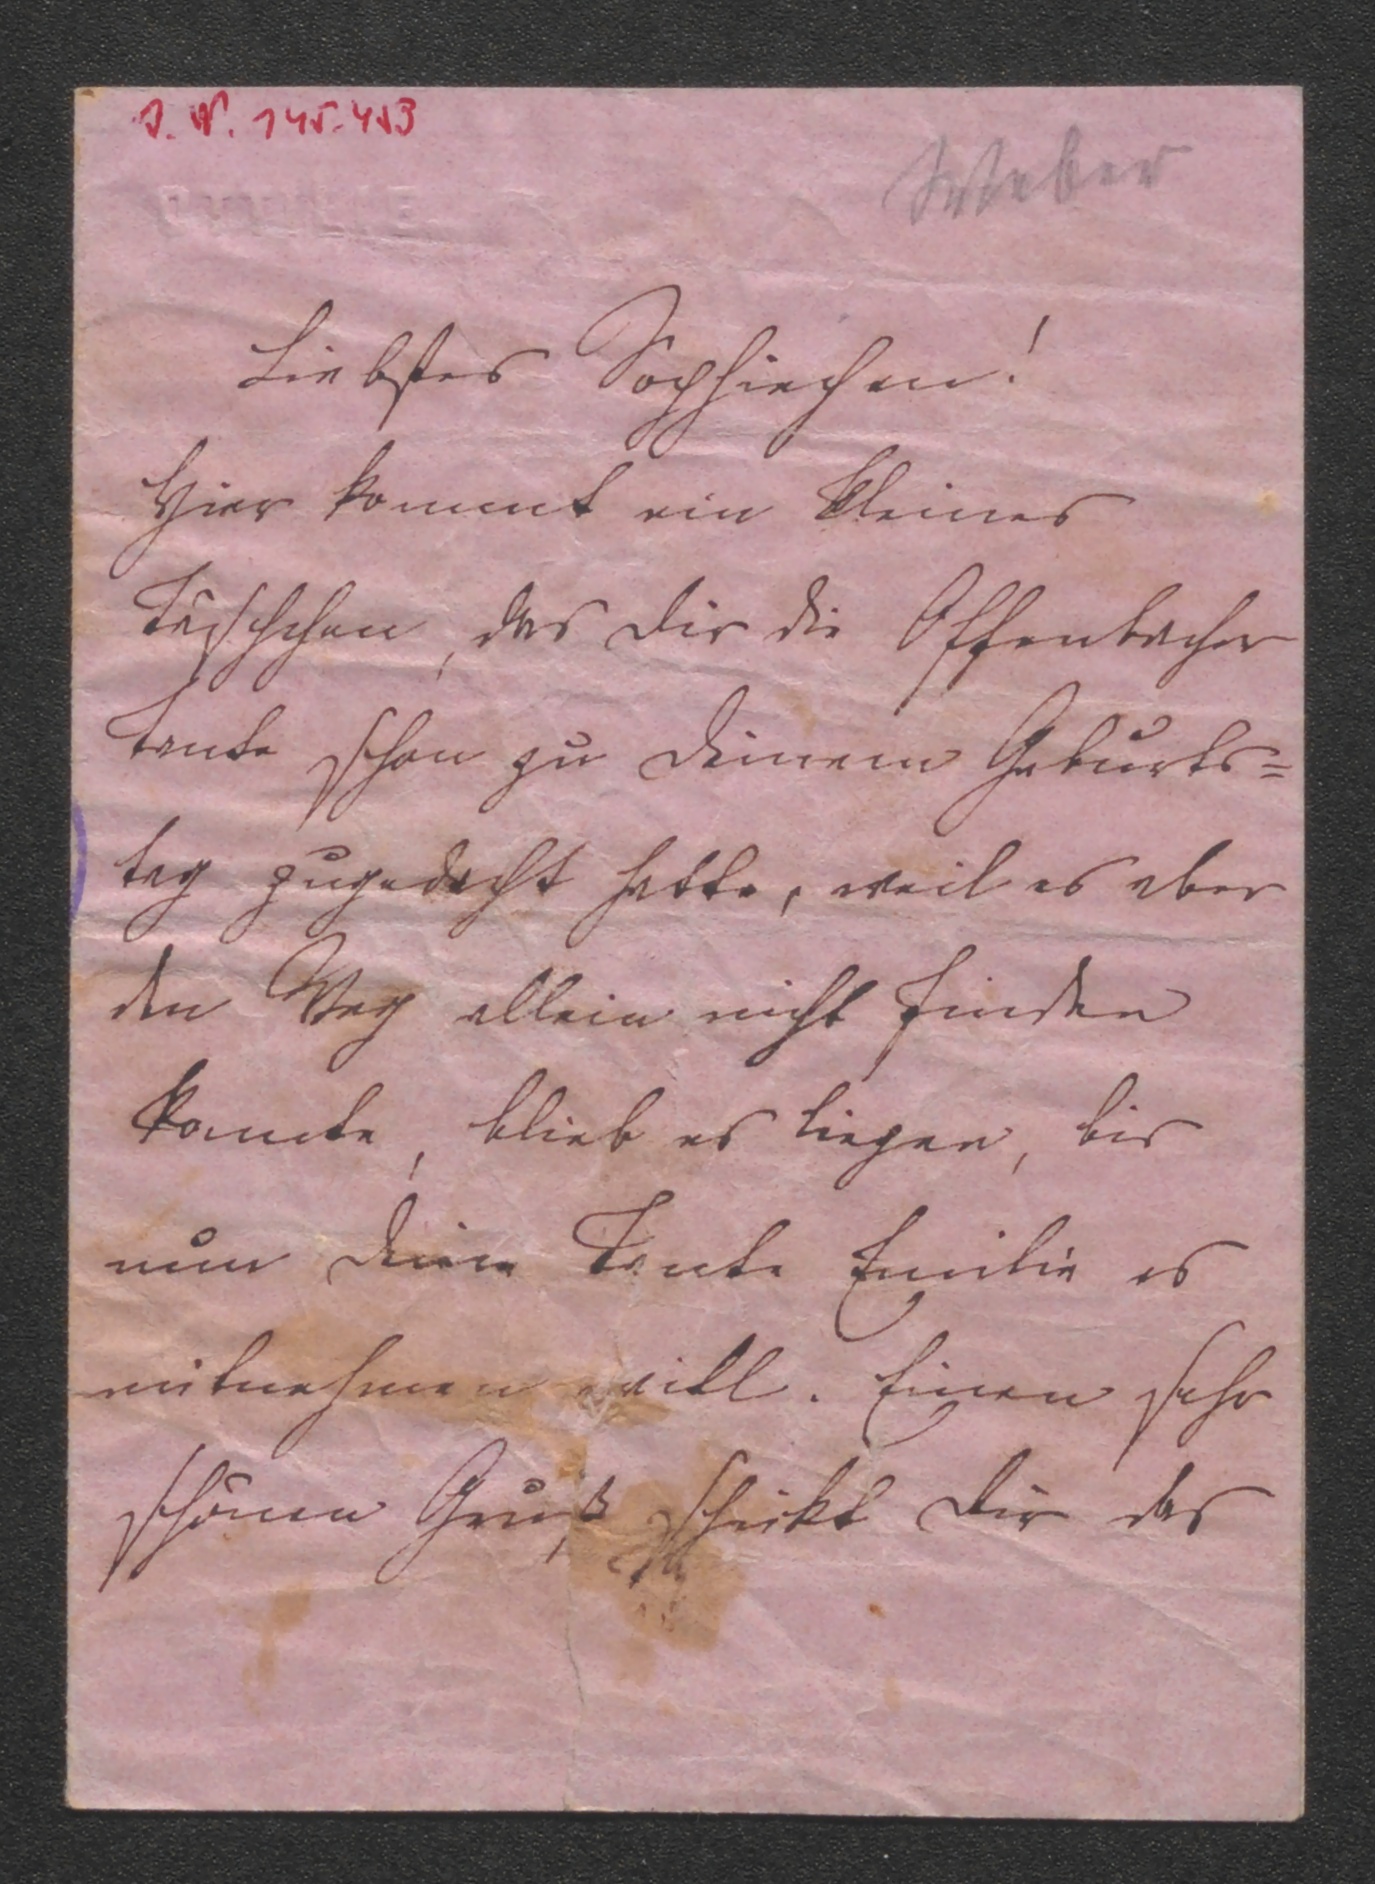 J. N. 145.413
Weber
Liebstes Sophiechen!
Hier kommt ein kleines
Täschchen, das Dir die Offenbacher
Tante schon zu Deinem Geburts=
tag zugedacht hatte, weil es aber
den Weg allein nicht finden
konnte, blieb es liegen, bis
nun Deine Tante Emilie es
mitnehmen will. Einen sehr
schönen Gruß schickt Dir das